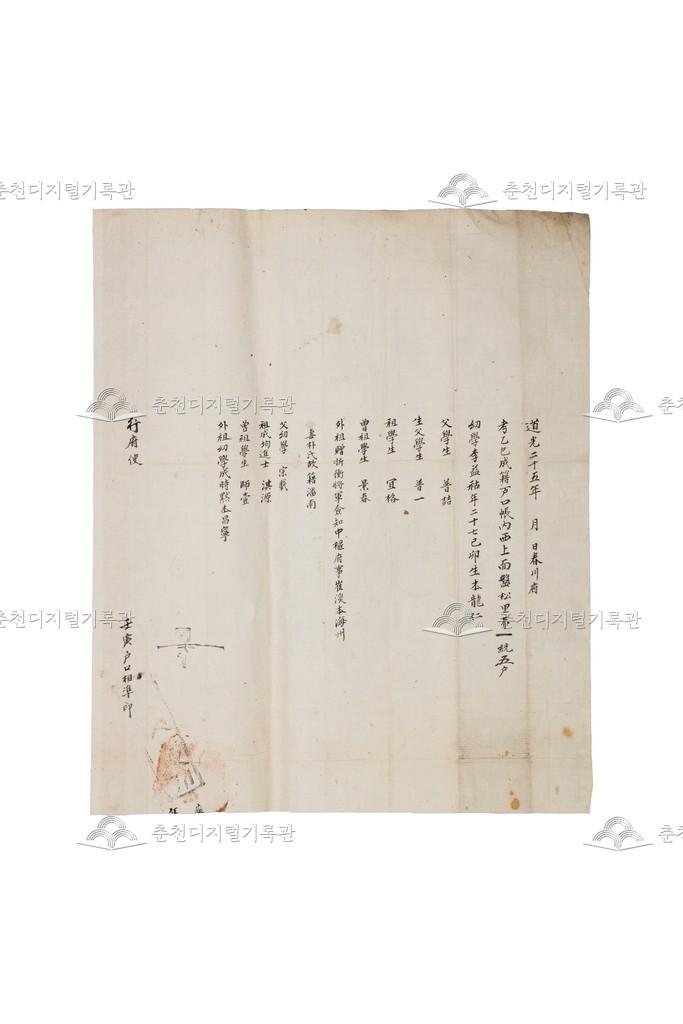 道光二十五年 月 日春川府
考乙巳成籍戶口帳內西上面盤松里第一統五戶
幼學李益 年二十七己卯生本龍仁
父學生 普喆
生父學生 普一
祖學生 宜格
曾祖學生 景春
外祖贈折衝將軍僉知中樞府事崔 本海州
妻朴氏 籍潘南
父幼學 宗
祖成均進士 淇源
曾祖學生 師壹
外祖幼學成時默本昌寧
行府使
壬寅戶口相準印
춘천디지털기록관
춘천디지털기록관
춘천디지털기록관
춘천디지털기록관
춘천디지털기록관
춘천디지털기록관